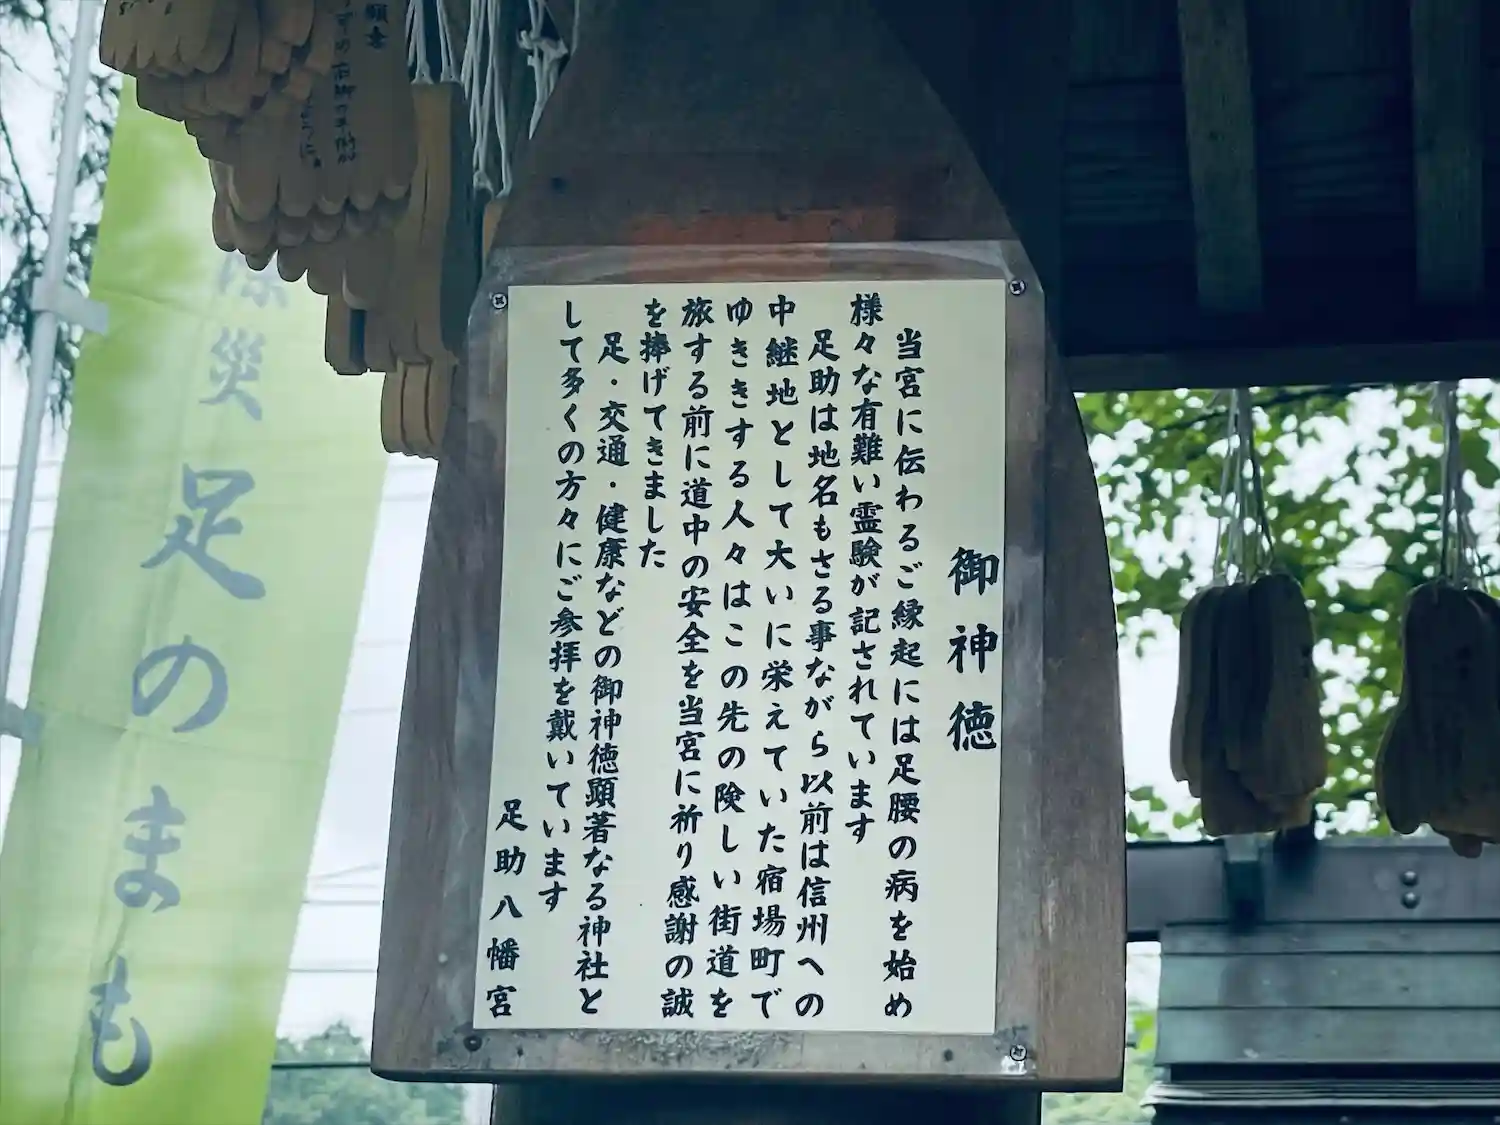 御神徳
当宮に伝わるご縁起には足腰の病を始め
様々な有難い霊験が記されています
足助は地名もさる事ながら以前は信州への
中継地として大いに栄えていた宿場町で
ゆききする人々はこの先の険しい街道を
旅する前に道中の安全を当宮に祈り感謝の誠
を捧げてきました
足・交通・健康などの御神徳顕著なる神社と
して多くの方々にご参拝を戴いています
足助八幡宮
災 足のまも
願意